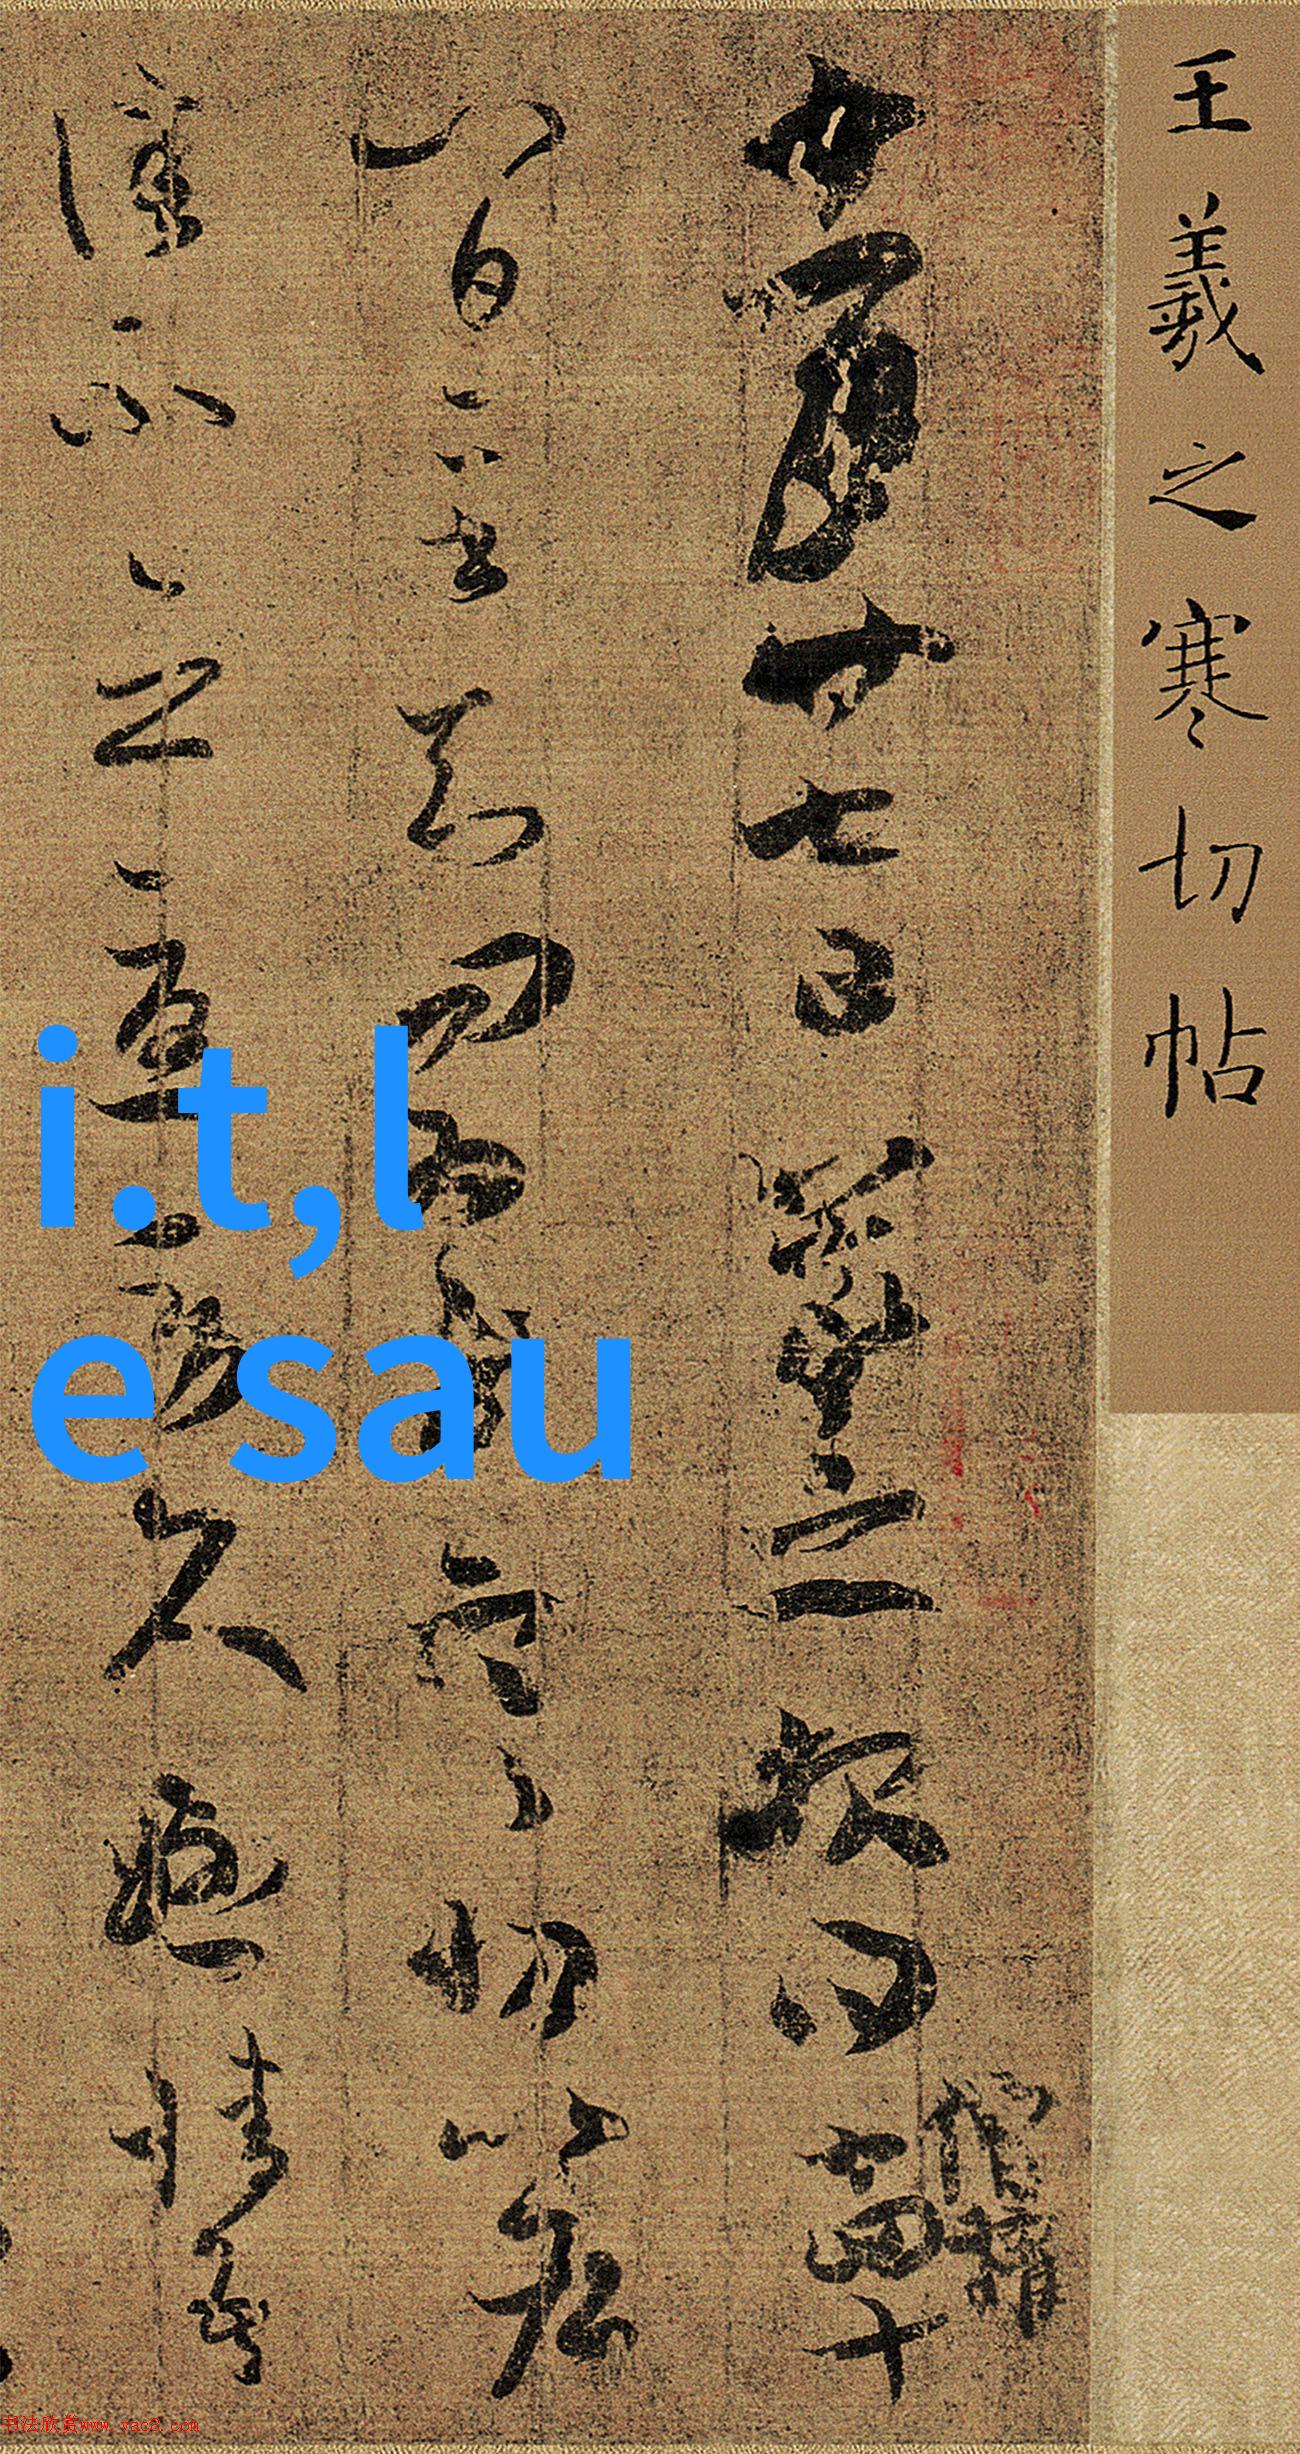 王羲之寒切帖
十一月廿七日羲之報得十四十
八日二書知問為慰寒切比各
佳不念憂勞久懸情吾
i.t,l
e sau
书法欣赏www.yac8.com